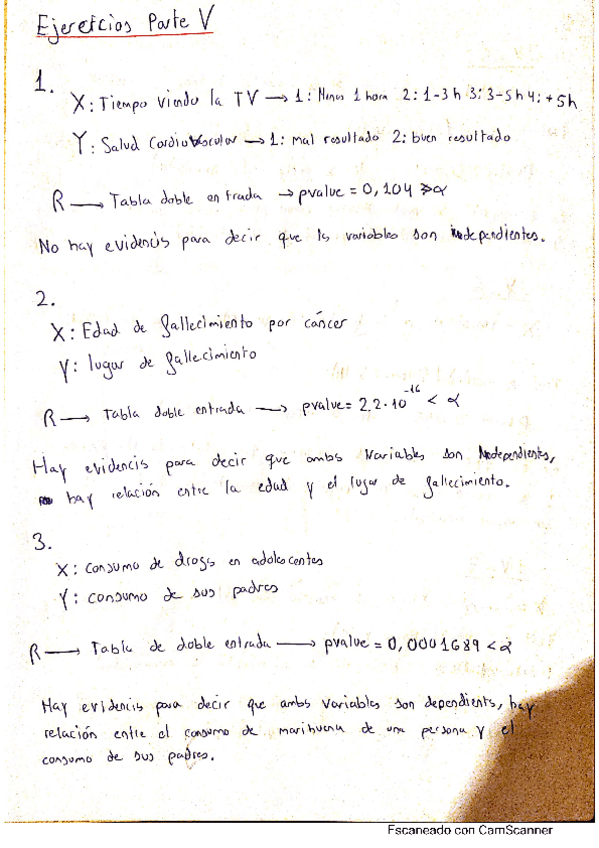 Ejercicios Parte V
1.
X: Tiempo viendo la TV → 1: Menos 1 hora 2: 1-3 h 3: 3-5 h 4: +5h
Y: Salud Cardiovascular → 1: mal resultado 2: buen resultado
R → Tabla doble entrada → pvalue = 0,104 > α
No hay evidencia para decir que las variables son dependientes.
2.
X: Edad de fallecimiento por cáncer
Y: lugar de fallecimiento
R → Tabla doble entrada → pvalue = 2,2·10^-16 < α
Hay evidencia para decir que ambas variables son dependientes,
hay relación entre la edad y el lugar de fallecimiento.
3.
X: consumo de droga en adolescentes
Y: consumo de sus padres
R → Tabla de doble entrada → pvalue = 0,0001689 < α
Hay evidencia para decir que ambas variables son dependients, hay
relación entre el consumo de marihuana de una persona y el
consumo de sus padres.
Escaneado con CamScanner